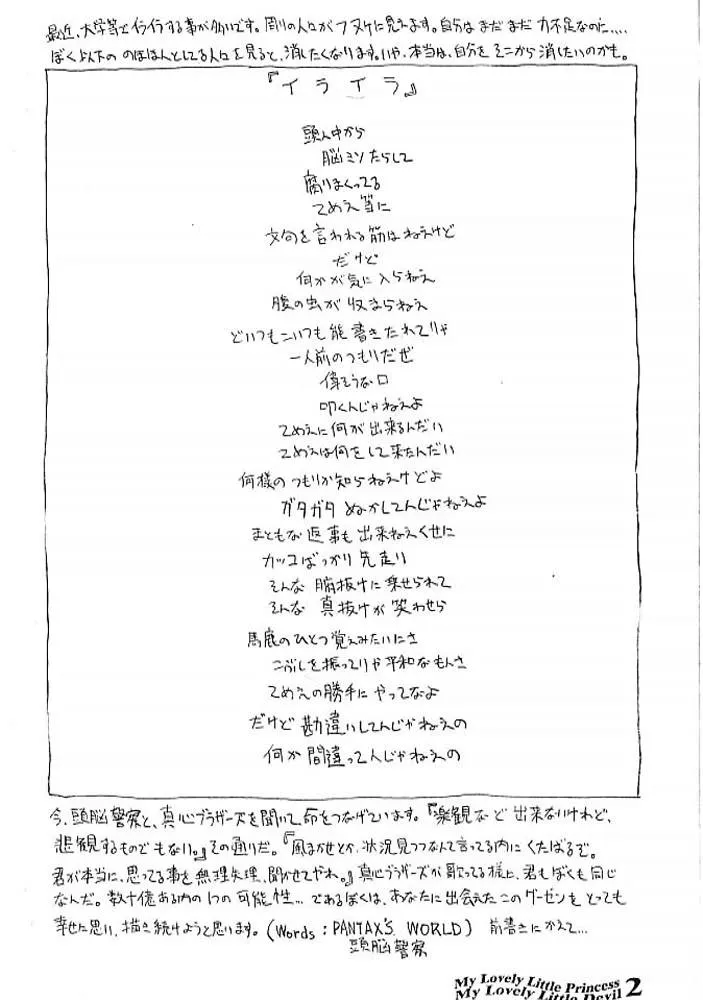 最近、大学等でイライラする事が多いです。周りの人がフヌケに見えます。自分はまだまだ力不足なのに....
ぼく以下ののほほんとしてる人を見ると、消したくなります。いや、本当は、自分をそこから消したいのかも。
『イライラ』
頭ん中から
脳ミソたらして
腐りまくってる
てめえ等に
文句を言われる筋はねえけど
だけど
何かが気に入らねえ
腹の虫が収まらねえ
どいつもこいつも能書きたれてりゃ
一人前のつもりだぜ
偉そうな口
叩くんじゃねえよ
てめえに何が出来るんだい
てめえは何をして来たんだい
何様のつもりか知らねえけどよ
ガタガタぬかしてんじゃねえよ
まともな返事も出来ねえくせに
カッコばっかり先走り
そんな腑抜けに乗せられて
そんな真抜けが笑わせら
馬鹿のひとつ覚えみたいにさ
こぶしを振ってりゃ平和なもんさ
てめえの勝手にやってなよ
だけど勘違いしてんじゃねえの
何か間違ってんじゃねえの
今、頭脳警察と、真心ブラザーズを聞いて、命をつなげています。『楽観など出来ないけれど、
悲観するものでもない。』その通りだ。『風まかせとか、状況見つつなんて言ってる内にくたばるぞ。
君が本当に、思ってる事を無理矢理、聞かせてやれ。』真心ブラザーズが歌ってる様に、君もぼくも同じ
なんだ。数十億ある内の1つの可能性...であるぼくは、あなたに出会えたこのグーゼンをとっても
幸せに思い、描き続けようと思います。(Words : PANTAX'S WORLD) 前書きにかえて...
頭脳警察
My Lovely Little Princess
My Lovely Little Devil 2